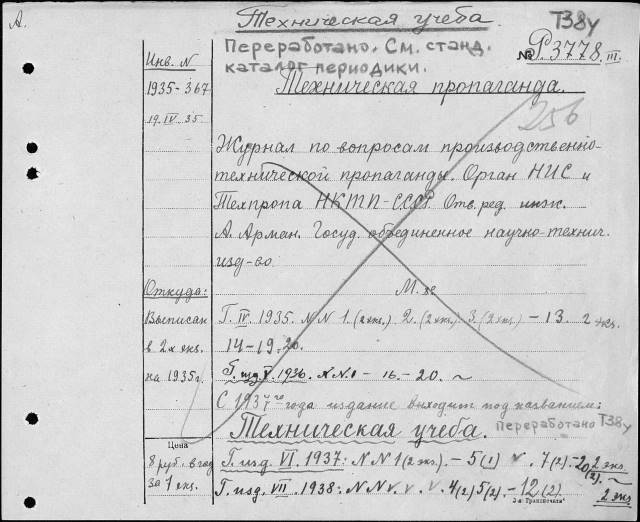 А.
Техническая учеба.
Т38у
Переработано. См. станд.
каталог периодики.
№ Р.3778. III.
Инв. N
1935-367
19.IV.35
Техническая пропаганда.
256
Журнал по вопросам производственно-
технической пропаганды. Орган НИС и
Техпропа НКТП-СССР. Отв. ред. инж.
А. Арман. Госуд. объединенное научно-технич.
изд-во.
Откуда:
Выписан
в 2х экз.
на 1935г.
М.
Г. IV. 1935. NN 1. (2 экз.) 2. (2 экз.) 3 (2 экз.) - 13. 2 экз.
14-19. 20.
Г. изд. V. 1936. NN.1 - 16. - 20.
С 1937го года издание выходит под названием:
Техническая учеба.
переработано Т38у
Цена
8 руб. в год
за 1 экз.
Г. изд. VI. 1937: NN 1 (2 экз.) - 5(1) v. 7(2) - 20(2). 2 экз.
Г. изд. VII. 1938: NN v. v. v 4(2) 5(2) - 12(2)
2 экз
3-я Транспечати